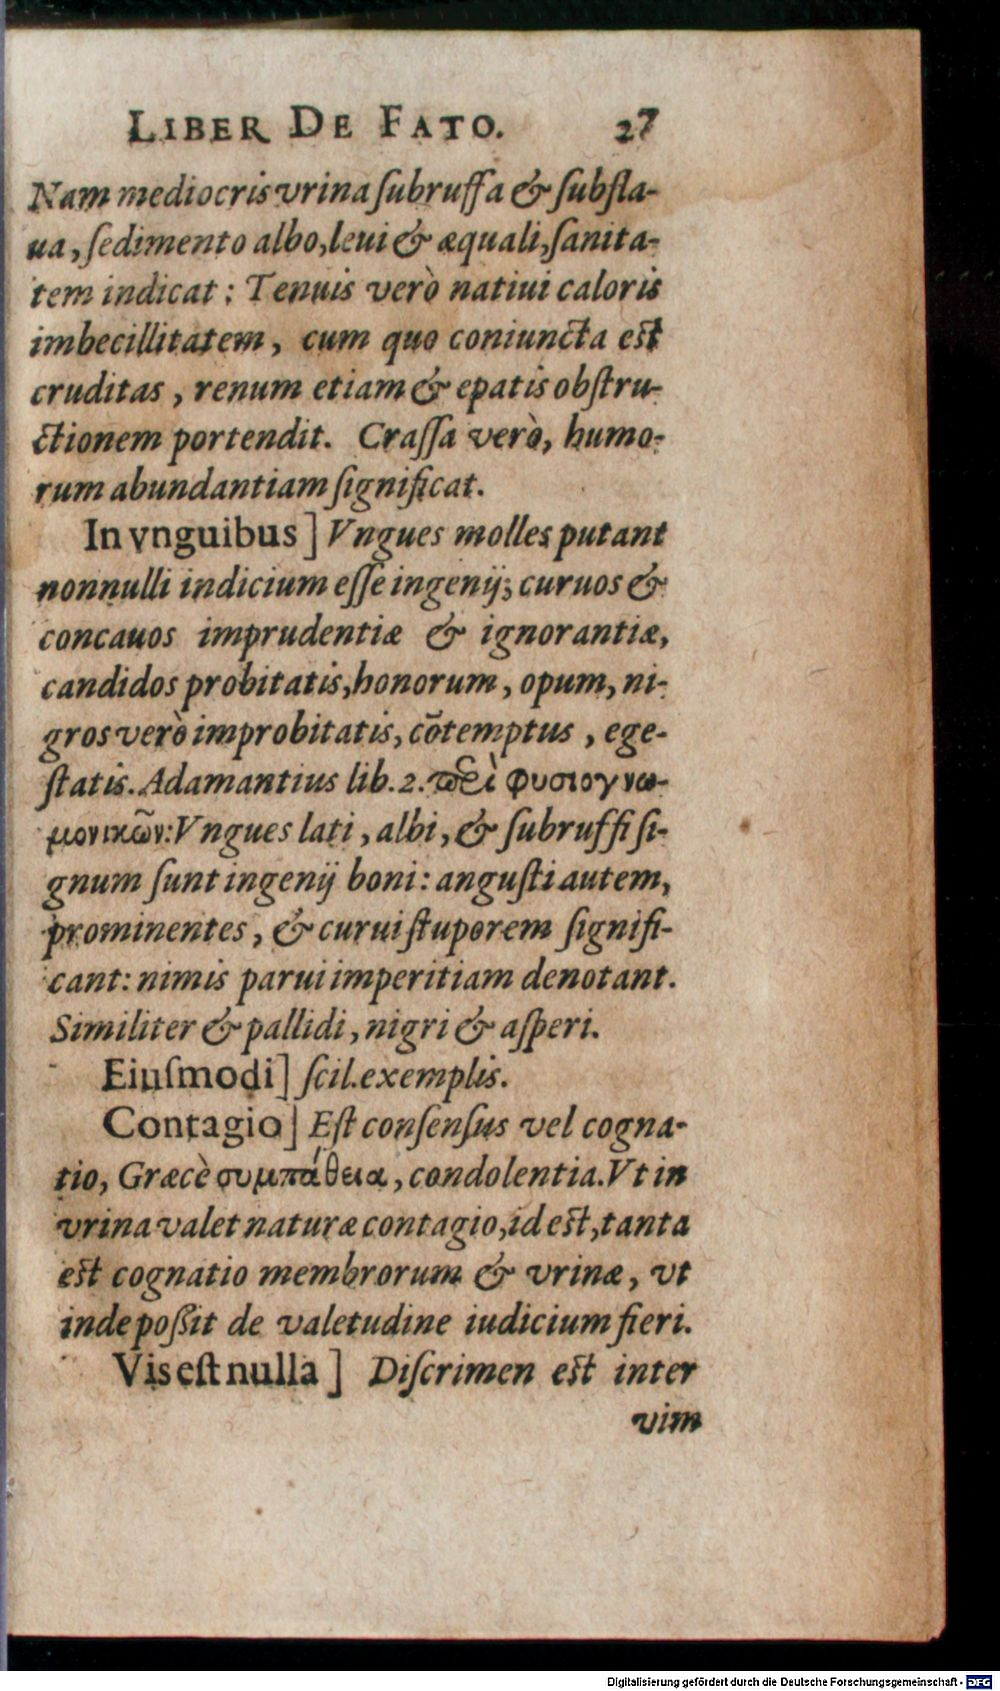 LIBER DE FATO. 27
Nam mediocris vrina ſubruffa & ſubfla-
ua, ſedimento albo, leui & æquali, ſanita-
tem indicat: Tenuis verò natiui caloris
imbecillitatem, cum quo coniuncta est
cruditas, renum etiam & epatis obſtru-
ctionem portendit. Craſſa verò, humo-
rum abundantiam ſignificat.
In vnguibus] Vngues molles putant
nonnulli indicium eſſe ingenij; curuos &
concauos imprudentiæ & ignorantiæ,
candidos probitatis, honorum, opum, ni-
gros verò improbitatis, cōtemptus, ege-
ſtatis. Adamantius lib. 2. περὶ φυσιογνω-
μονικῶν: Vngues lati, albi, & ſubruffi ſi-
gnum ſunt ingenij boni: anguſti autem,
prominentes, & curui ſtuporem ſignifi-
cant: nimis parui imperitiam denotant.
Similiter & pallidi, nigri & aſperi.
Eiuſmodi] ſcil. exemplis.
Contagio] Eſt conſenſus vel cogna-
tio, Græcè συμπάθεια, condolentia. Vt in
vrina valet naturæ contagio, id est, tanta
est cognatio membrorum & vrinæ, vt
inde poßit de valetudine iudicium fieri.
Vis eſt nulla] Diſcrimen est inter
vim
Digitalisierung gefördert durch die Deutsche Forschungsgemeinschaft - DFG